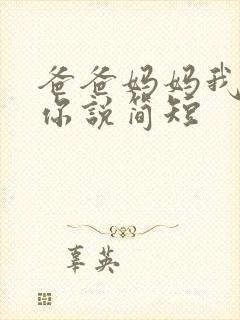 爸爸妈妈我
你说简短
辜英